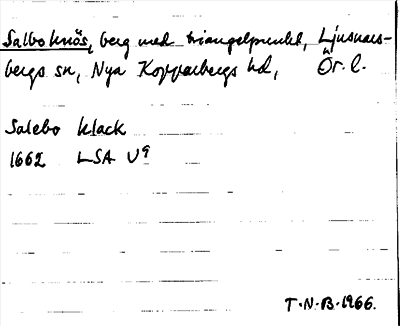 Salboknös, berg med triangelpunkt, Ljusnars-
bergs sn, Nya Kopparbergs hd, Ör. l.
Salebo klack
1662 LSA U9
T.N.B. 1966.